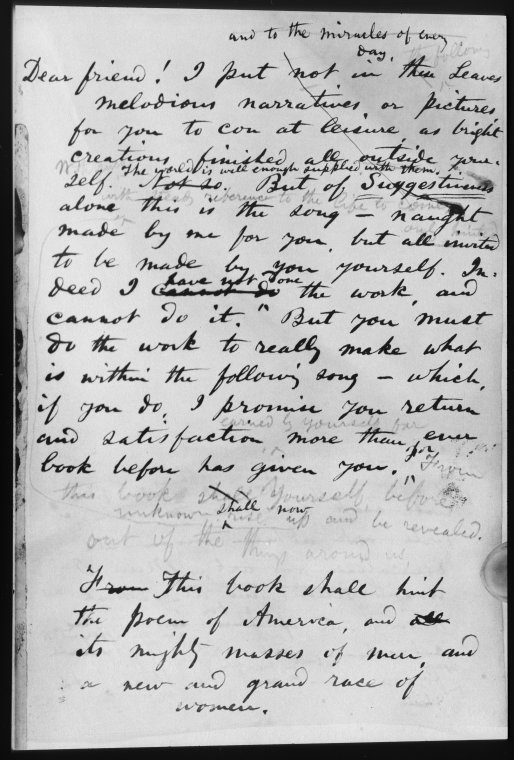 and to the miracles of every
day,
the following
Dear friend! I put not in these Leaves
melodious narratives, or pictures
for you to con at leisure, as bright
creations finished all outside your-
The world is well enough supplied with them.
self. Not so. But of Suggestiveness
with reference to the life to come
alone this is the song — naught
made by me for you, but all
to be made by you yourself. In-
have not done
deed I cannot do the work, and
cannot do it. But you must
do the work to really make what
is within the following song — which,
if you do, I promise you return
earned by yourself far
and satisfaction more than ever
book before has given you. For
From
this book shall Yourself, before
shall now
unknown rise up and be revealed.
out of the things around us,
From This book shall hint
the poem of America, and all
its mighty masses of men, and
a new and grand race of
women.